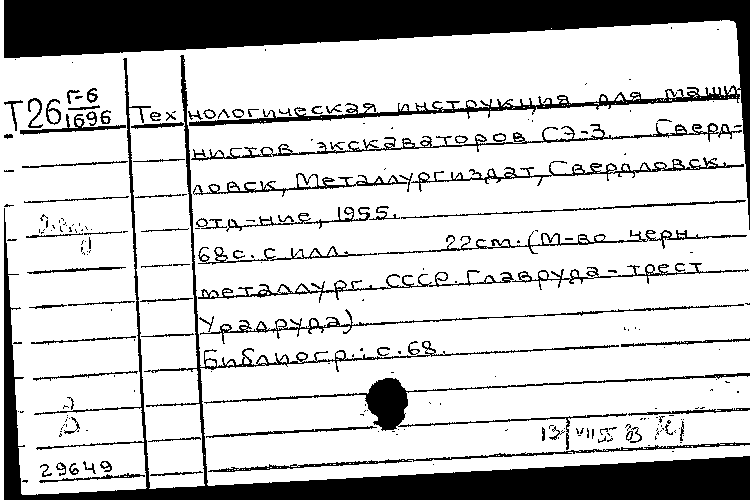 Т26 Г-6/1696 Технологическая инструкция для маши
нистов экскаваторов СЭ-3. Сверд=
ловск, Металлургиздат, Свердловск.
отд-ние, 1955.
68с. с илл. 22см. (М-во черн.
металлург. СССР. Главруда - трест
Уралруда).
Библиогр.: с. 68.
13 VII 55
29649